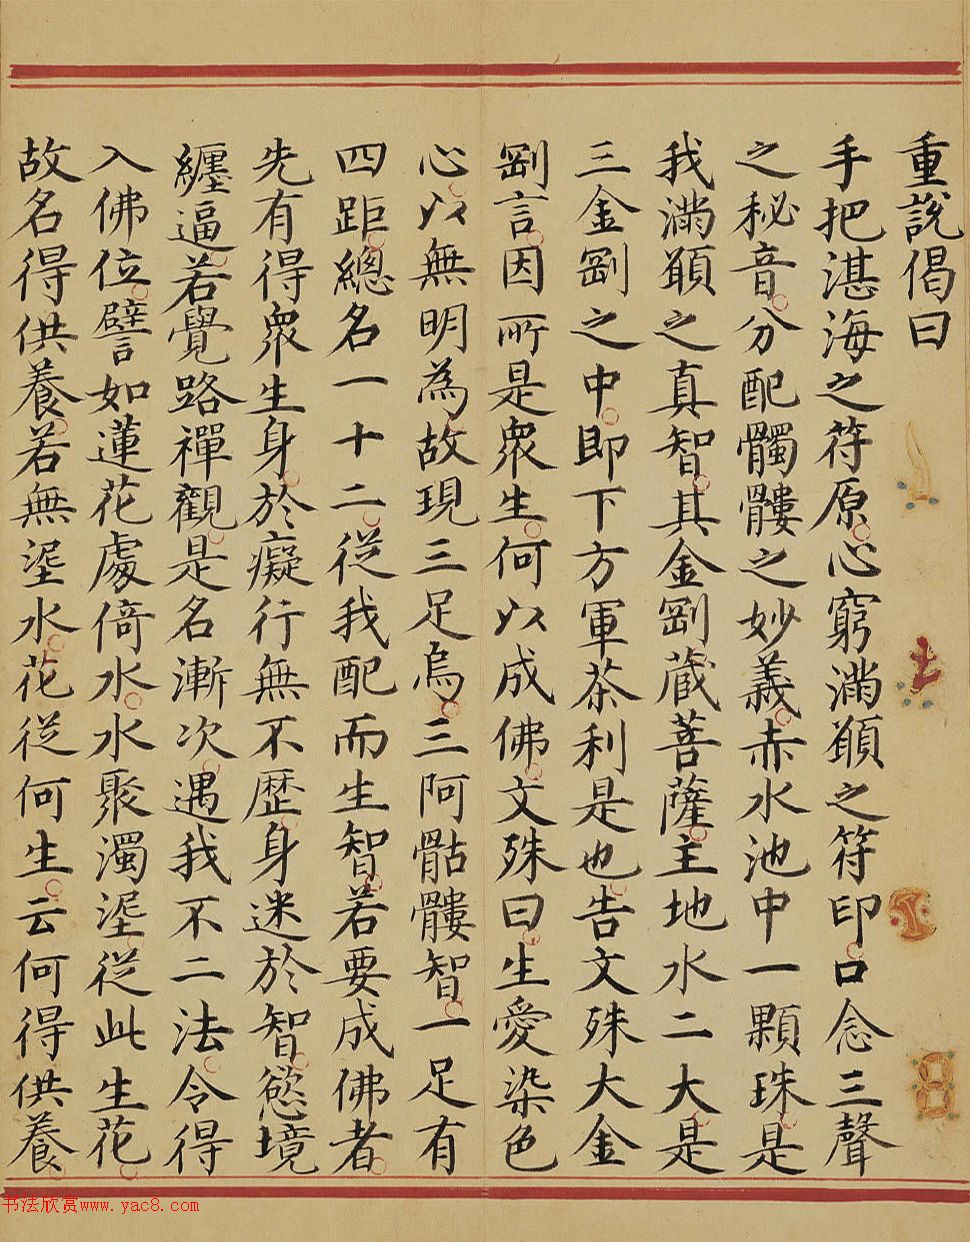 重說偈曰
手把湛海之符原心窮滿願之符印口念三聲
之秘音分配髑髏之妙義赤水池中一顆珠是
我滿願之真智其金剛藏菩薩主地水二大是
三金剛之中即下方軍茶利是也告文殊大金
剛言因所是衆生何以成佛文殊曰生愛染色
心以無明為故現三足烏三阿骷髏智一足有
四距總名一十二從我配而生智若要成佛者
先有得衆生身於癡行無不歷身迷於智慾境
纏逼若覺路禪觀是名漸次遇我不二法令得
入佛位譬如蓮花處倚水水聚濁埿從此生花
故名得供養若無埿水花從何生云何得供養
书法欣赏www.yac8.com